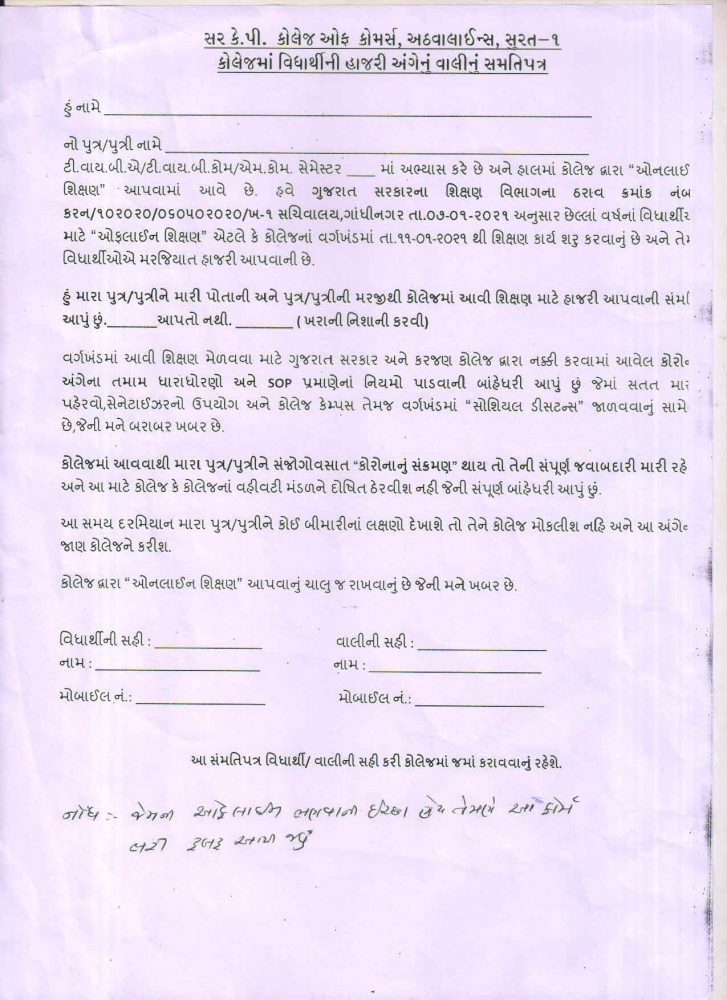 સર કે.પી. કોલેજ ઓફ કોમર્સ, અઠવાલાઈન્સ, સુરત–૧
કોલેજમાં વિદ્યાર્થીની હાજરી અંગેનું વાલીનું સમતિપત્ર
હું નામે ____________
નો પુત્ર/પુત્રી નામે ____________
ટી.વાય.બી.એ/ટી.વાય.બી.કોમ/એમ.કોમ. સેમેસ્ટર ____ માં અભ્યાસ કરે છે અને હાલમાં કોલેજ દ્વારા “ઓનલાઈ
શિક્ષણ” આપવામાં આવે છે. હવે ગુજરાત સરકારના શિક્ષણ વિભાગના ઠરાવ ક્રમાંક નંબ
કરન/૧૦૨૦૨૦/૦૬૦૫૦૨૦૨૦/ખ-૧ સચિવાલય,ગાંધીનગર તા.૦૭-૦૧-૨૦૨૧ અનુસાર છેલ્લાં વર્ષનાં
માટે “ઓફલાઈન શિક્ષણ” એટલે કે કોલેજનાં વર્ગખંડમાં તા.૧૧-૦૧-૨૦૨૧ થી શિક્ષણ કાર્ય શરુ કરવાનું છે અને
વિદ્યાર્થીઓએ મરજિયાત હાજરી આપવાની છે.
હું મારા પુત્ર/પુત્રીને મારી પોતાની અને પુત્ર/પુત્રીની મરજીથી કોલેજમાં આવી શિક્ષણ માટે હાજરી આપવાની
આપું છું.______આપતો નથી. _______ ( ખરાની નિશાની કરવી)
વર્ગખંડમાં આવી શિક્ષણ મેળવવા માટે ગુજરાત સરકાર અને કરજણ કોલેજ દ્વારા નક્કી કરવામાં આવેલ
અંગેના તમામ ધારાધોરણો અને SOP પ્રમાણેનાં નિયમો પાડવાની બાંહેધરી આપું છું જેમાં સતત
પહેરવો,સેનેટાઈઝરનો ઉપયોગ અને કોલેજ કેમ્પસ તેમજ વર્ગખંડમાં “સોશિયલ ડીસટન્સ” જાળવવાનું સામે
છે,જેની મને બરાબર ખબર છે.
કોલેજમાં આવવાથી મારા પુત્ર/પુત્રીને સંજોગોવસાત “કોરોનાનું સંક્રમણ” થાય તો તેની સંપૂર્ણ જવાબદારી મારી રહે
અને આ માટે કોલેજ કે કોલેજનાં વહીવટી મંડળને દોષિત ઠેરવીશ નહી જેની સંપૂર્ણ બાંહેધરી આપું છું.
આ સમય દરમિયાન મારા પુત્ર/પુત્રીને કોઈ બીમારીનાં લક્ષણો દેખાશે તો તેને કોલેજ મોકલીશ નહિ અને આ
જાણ કોલેજને કરીશ.
કોલેજ દ્વારા “ ઓનલાઈન શિક્ષણ” આપવાનું ચાલુ જ રાખવાનું છે જેની મને ખબર છે.
વિદ્યાર્થીની સહી : ____________ વાલીની સહી : ____________
નામ : ____________ નામ : ____________
મોબાઈલ નં.: ____________ મોબાઈલ નં.: ____________
આ સંમતિપત્ર વિદ્યાર્થી/ વાલીની સહી કરી કોલેજમાં જમાં કરાવવાનું રહેશે.
નોંધ :- જેમની ઓફલાઈન ભણવાની ઈચ્છા હોય તેમણે આ ફોર્મ
ભરી રૂબરૂ આપી જવું